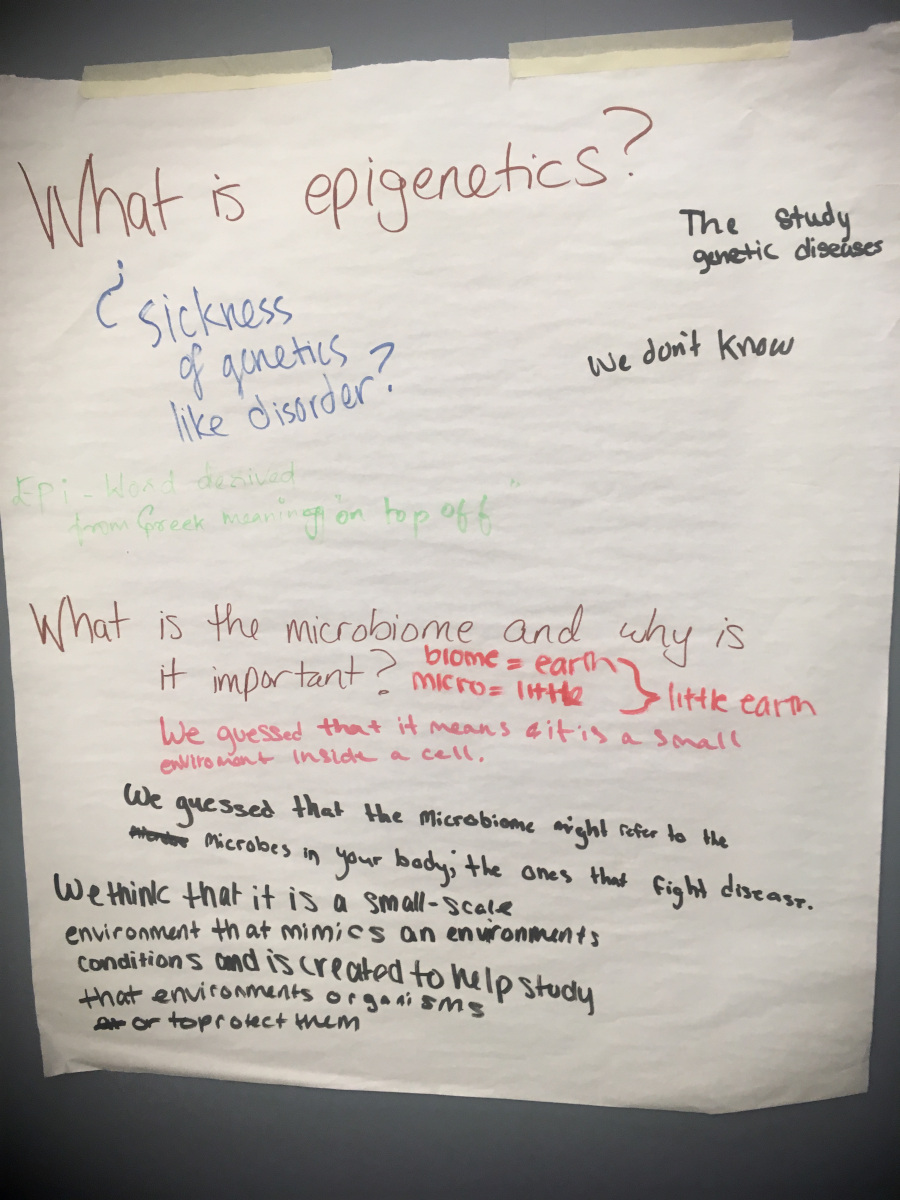 What is epigenetics?
The study
genetic diseases
¿ sickness
of genetics
like disorder?
We don't know
Epi - Word derived
from Greek meaning "on top off"
What is the microbiome and why is
it important?
biome = earth
micro = little
} little earth
We guessed that it means & it is a small
enviroment inside a cell.
We guessed that the microbiome might refer to the
microbes in your body; the ones that fight disease.
We think that it is a small-scale
environment that mimics an environments
conditions and is created to help study
that environments organisms
or to protect them